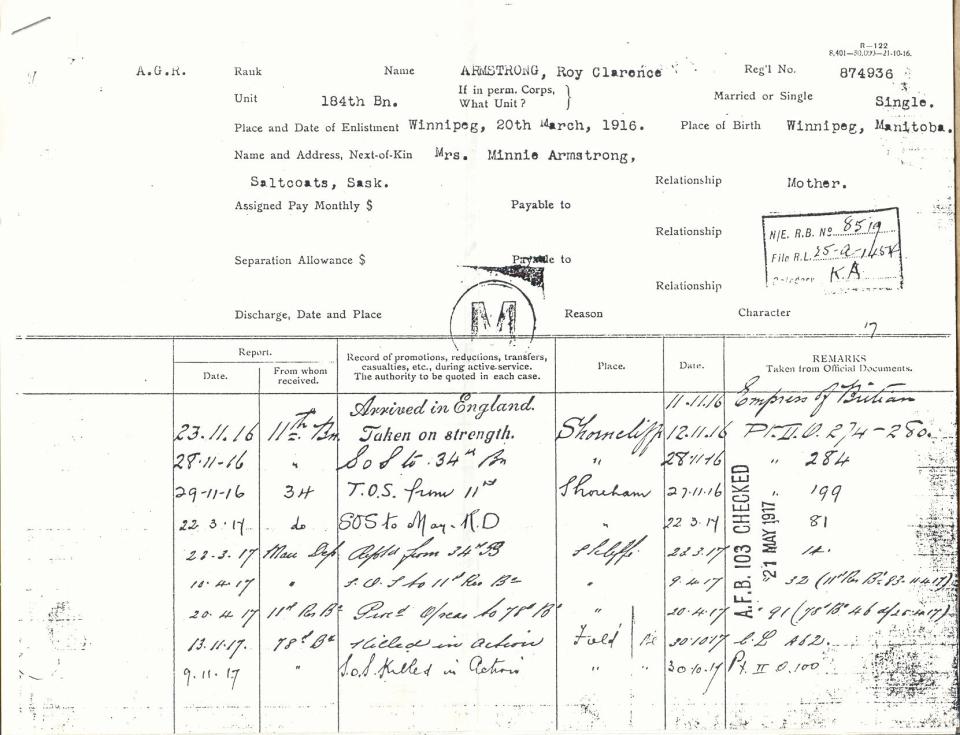 R—122
8,401—50,000—21-10-16.
A.G.R. Rank Name ARMSTRONG, Roy Clarence Reg'l No. 874936
Unit 184th Bn. If in perm. Corps, What Unit? } Married or Single Single.
Place and Date of Enlistment Winnipeg, 20th March, 1916. Place of Birth Winnipeg, Manitoba.
Name and Address, Next-of-Kin Mrs. Minnie Armstrong,
Saltcoats, Sask. Relationship Mother.
Assigned Pay Monthly $ Payable to
Relationship
N/E. R.B. No 8519
File R.L. 25-a-1454
Category K.A
Separation Allowance $ Payable to
Relationship
M
Discharge, Date and Place Reason Character
17
Report. Date. From whom received. Record of promotions, reductions, transfers, casualties, etc., during active service. The authority to be quoted in each case. Place. Date. REMARKS Taken from Official Documents.
Arrived in England. 11.11.16 Empress of Britian
23.11.16 11th Bn Taken on strength. Shorncliff 12.11.16 Pt.II.O. 274-280.
28-11-16 " SoS to 34th Bn " 28-11-16 " 284
29-11-16 34 T.O.S. from 11th Shoreham 27.11.16 " 199
22 3.17 do SOS to Man. R.D " 22 3.17 81
22-3.17 Man Dep from 34th B Scliffe 22.3.17 14.
10.4.17 " S.O.S to 11th Res Bn " 9.4.17 " 32
20.4.17 11th Res Bn Proc'd O/seas to 78th Bn " 20.4.17 " 91
13.11.17. 78th Bn Killed in action Field 30 10 17 C L A62.
9.11.17 " S.o.S Killed in Action " " 30.10.17 Pt. II O. 100
A.F.B. 103 CHECKED
21 MAY 1917